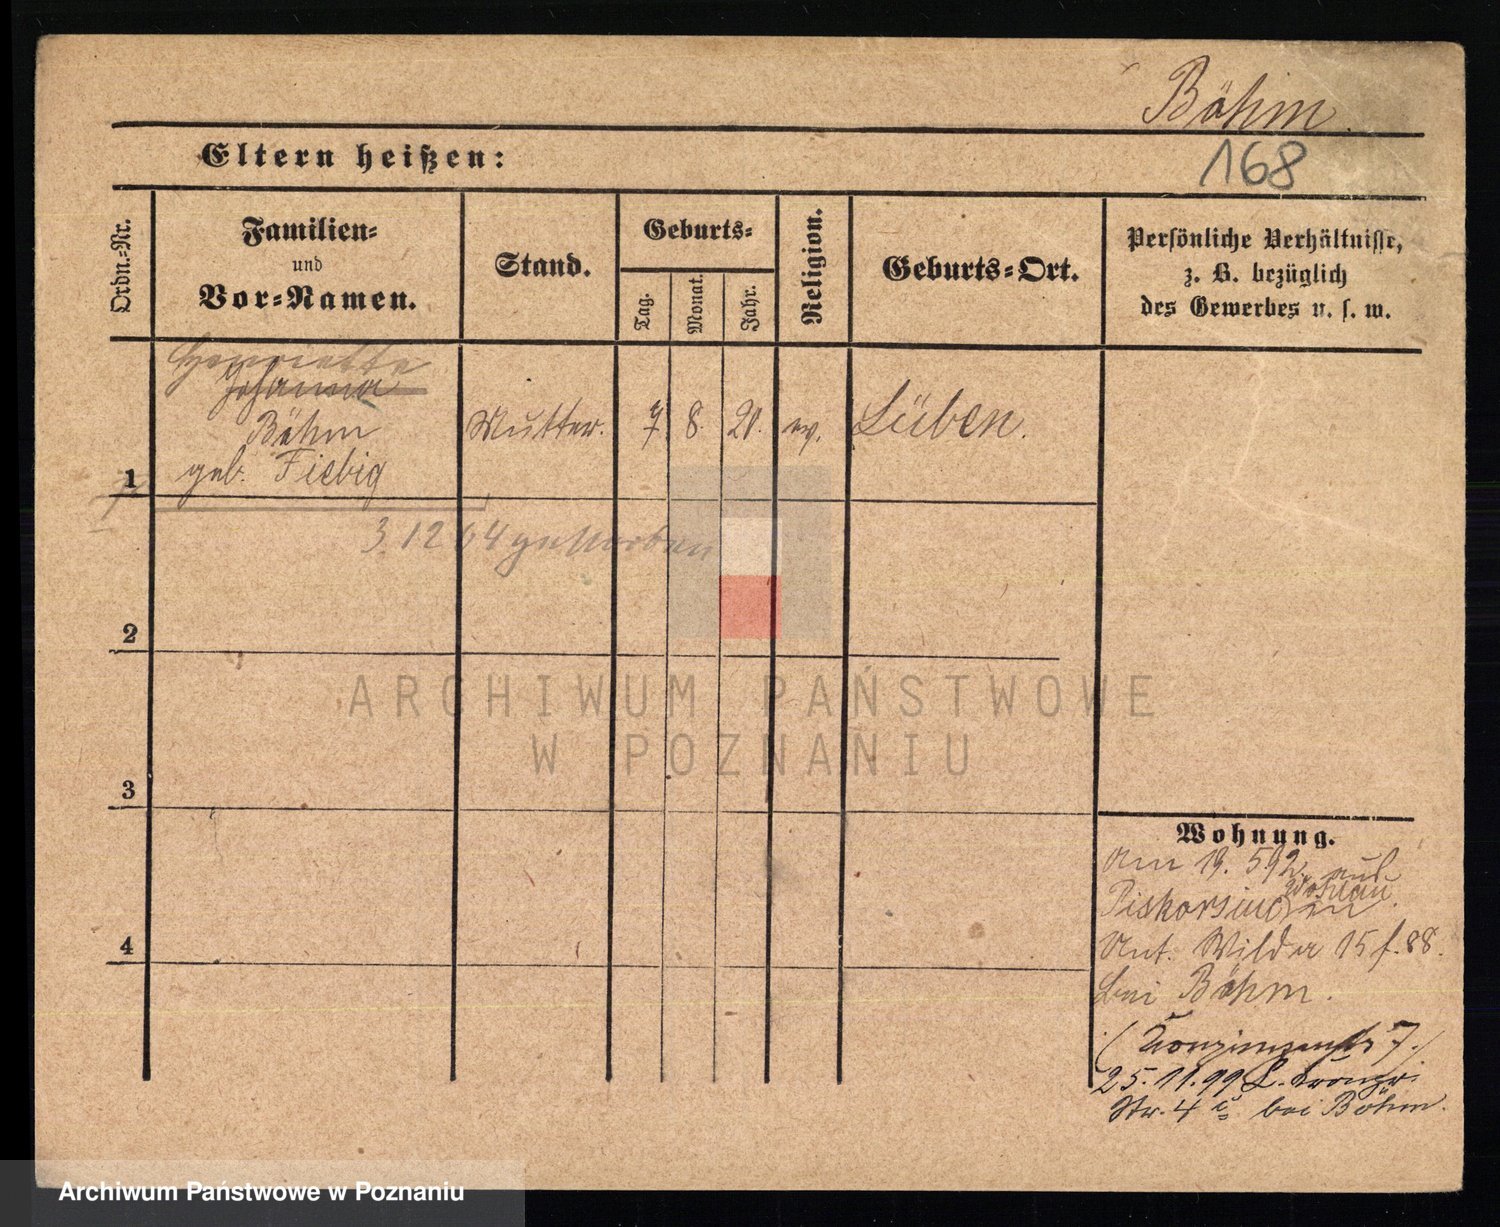 Böhm.
Eltern heißen:
168
Ordn.-Nr.
Familien-
und
Vor-Namen.
Stand.
Geburts-
Tag.
Monat.
Jahr.
Religion.
Geburts-Ort.
Persönliche Verhältnisse,
z. B. bezüglich
des Gewerbes u. s. w.
Henriette
Johanna
Böhm
geb. Fiebig
Mutter.
7 8. 20. ev. Lüben.
1
3 12 64 gestorben
2
3
4
Wohnung.
Am 19. 5 92. auf
Ant. Wilda 15 f. 88.
bei Böhm.
25. 11. 99
Str. 4 bei Böhm.
ARCHIWUM PAŃSTWOWE
W POZNANIU
Archiwum Państwowe w Poznaniu